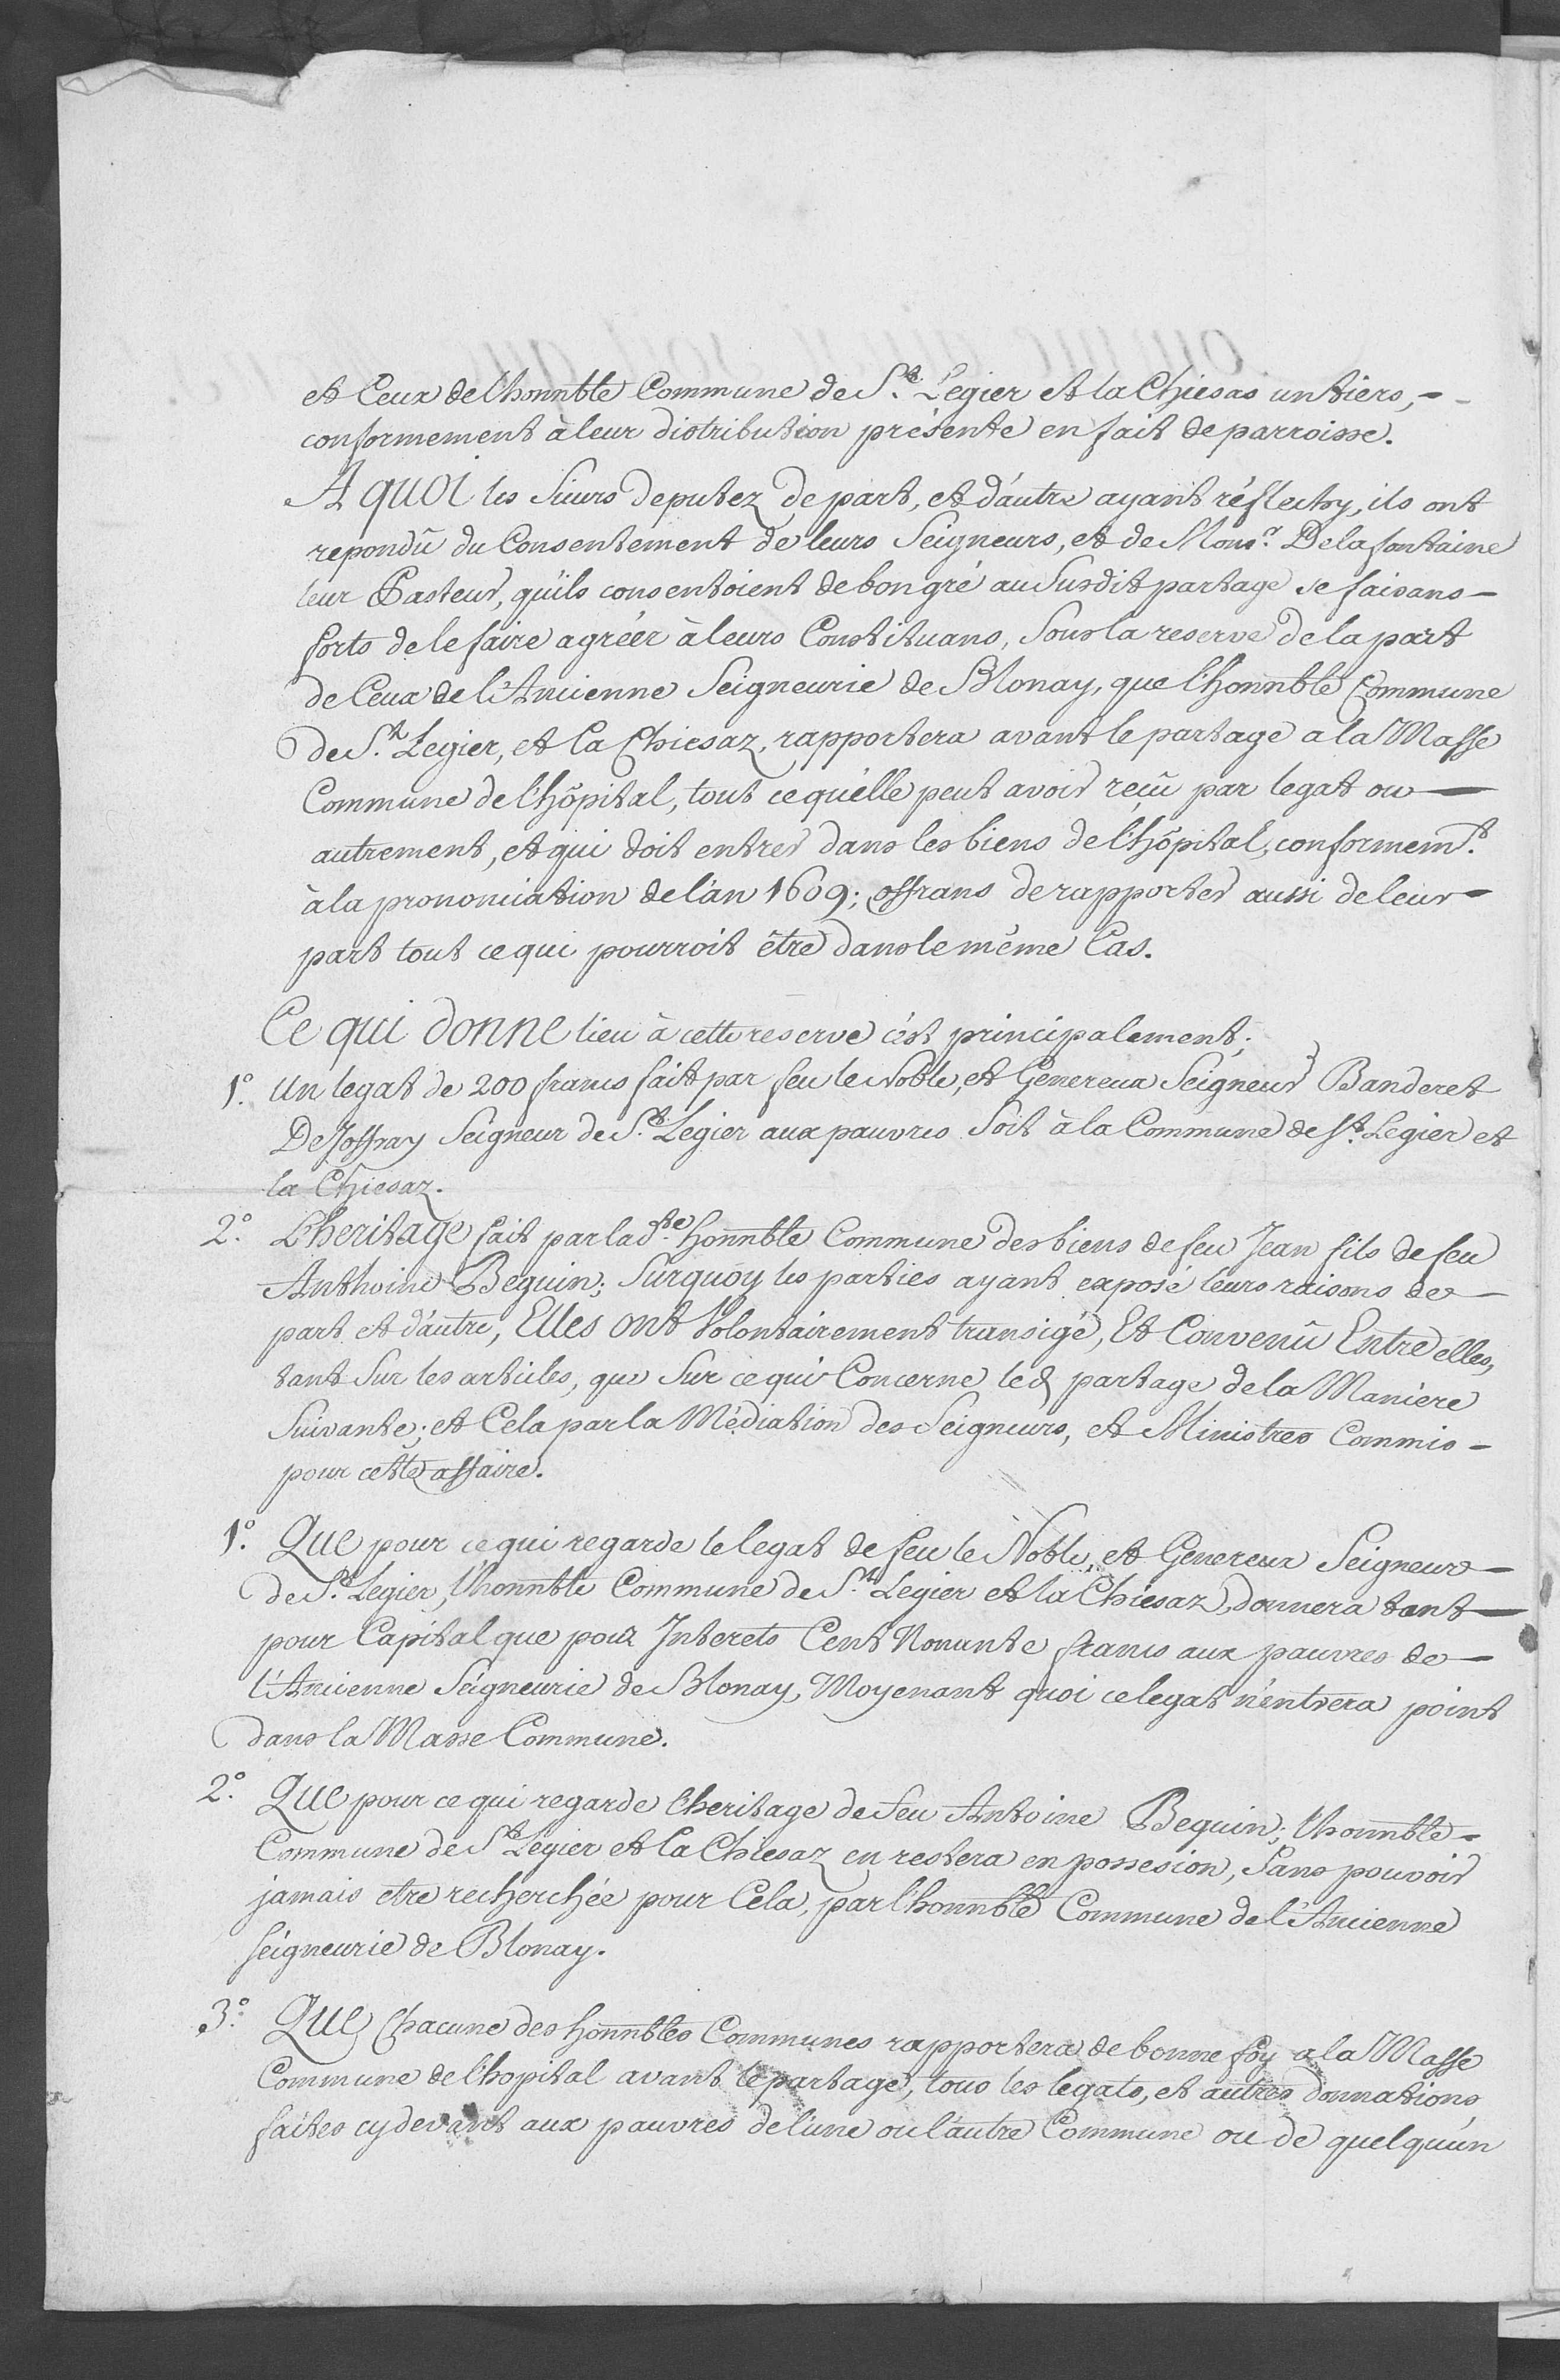 et Ceux de l'honnble Commune de St. Legier et la Chiesas un tiers,
conformement à leur distribution présente en fait de parroisse.
A quoi les Sieurs deputez de part, et d'autre ayant réflechy, ils ont
repondû du Consentement de leurs Seigneurs, et de Monsr. Delafontaine
leur Pasteur, qu'ils consentoient de bon gré au Susdit partage se faisans -
forts de le faire agréer à leurs Constituans, Sous la reserve de la part
de Ceux de l'Ancienne Seigneurie de Blonay, que l'honnble Commune
de St. Legier, et la Chiesaz, rapportera avant le partage a la Masse
Commune de l'hôpital, tout ce qu'elle peut avoir reçû par legat ou —
autrement, et qui doit entrer dans les biens de l'hôpital, conformemt.
à la prononciation de l'an 1609; offrans de rapporter aussi de leur -
part tout ce qui pourroit être dans le même Cas.
Ce qui donne lieu à cette reserve c'est principalement;
1°. Un legat de 200 francs fait par feu le Noble, et Genereux Seigneur Banderet
De Joffray Seigneur de St. Legier aux pauvres Soit à la Commune de St. Legier et
la Chiesaz.
2°. L'heritage fait par la dte. honnble Commune des biens de feu Jean fils de feu
Anthoine Beguin; Surquoy les parties ayant exposé leurs raisons de -
part et d'autre, Elles ont Volontairement transigé, Et Convenû Entre elles,
tant Sur les articles, que Sur ce qui Concerne led partage de la Maniere
Suivante; et Cela par la Médiation des Seigneurs, et Ministres Commis -
pour cette affaire.
1°. Que pour ce qui regarde le legat de feu le Noble, et Genereux Seigneur -
de St. Legier, l'honnble Commune de St. Legier et la Chiesaz, donnera tant —
pour Capital que pour Interets Cent Nonante francs aux pauvres de -
l'Ancienne Seigneurie de Blonay, Moyenant quoi ce legat n'entrera point
dans la Masse Commune.
2°. Que pour ce qui regarde l'heritage de feu Antoine Beguin; l'honnble -
Commune de St Legier et la Chiesaz en restera en possesion, Sans pouvoir
jamais etre recherchée pour Cela, par l'honnble Commune de l'Ancienne
Seigneurie de Blonay.
3°. Que Chacune des honnbles Communes rapportera de bonne foy a la Masse
Commune de l'hopital avant le partage, tous les legats, et autres donnations
faites cy devant aux pauvres de l'une ou l'autre Commune ou de quelqu'un